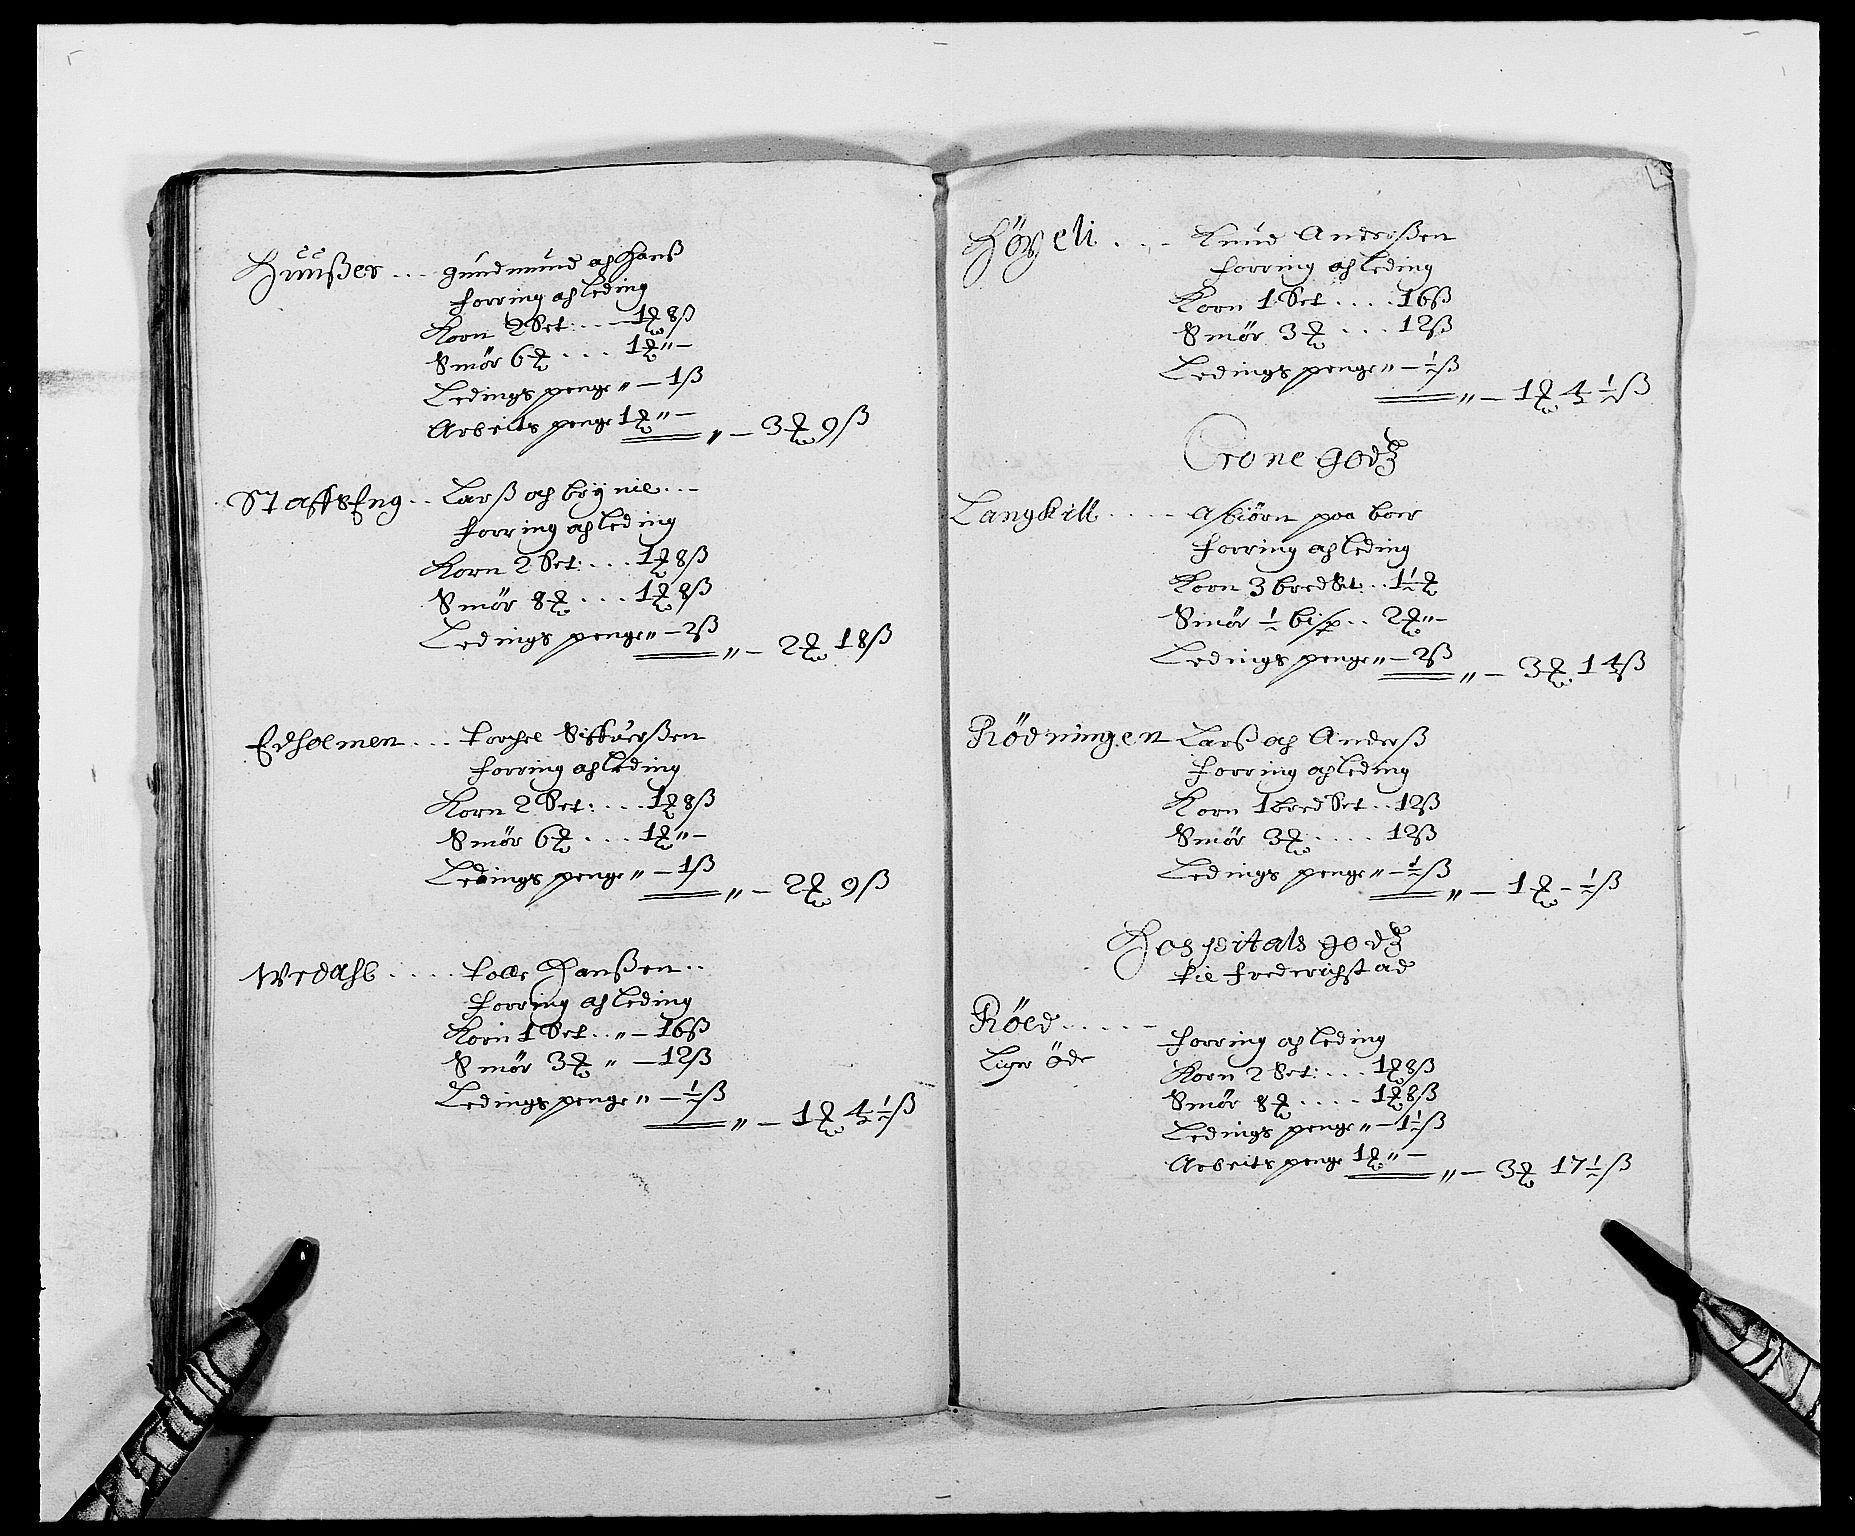 Huusser ... gundmund og Hans
forring og leding
Korn 2 Set: ... 1 ₰ 8 ß
Smør 6 ₰ .... 1 ₰ "–
Ledings penge " – 1 ß
Arbeits penge 1 ₰ "–
" – 3 ₰ 9 ß
StaffsEng .. Larß og brynil ...
forring og leding
Korn 2 Set: ... 1 ₰ 8 ß
Smør 8 ₰ .... 1 ₰ 8 ß
Ledings penge " – 2 ß
" – 2 ₰ 18 ß
Edholmen ... torchel
forring og leding
Korn 2 Set: .... 1 ₰ 8 ß
Smør 6 ₰ .... 1 ₰ "–
Ledings penge " – 1 ß
" – 2 ₰ 9 ß
Wedahl ..... tolle Hanßen ..
forring og leding
Korn 1 Set .. " – 16 ß
Smør 3 ₰ " – 12 ß
Ledings penge " – ½ ß
" – 1 ₰ 4 ½ ß
Høyeli .... Knud Anderßen
forring og leding
Korn 1 Set .... 16 ß
Smør 3 ₰ ... 12 ß
Ledings penge " – ½ ß
" – 1 ₰ 4 ½ ß
Crone godz
Langkill ..... Asbiørn paa boer
forring og leding
Korn 3 bred Set .. 1 ½ ₰
Smør ½ bisp .. 2 ₰ "–
Ledings penge " – 2 ß
" – 3 ₰ 14 ß
Rødningen Larß og Anderß
forring og leding
Korn 1 bred Set .. 12 ß
Smør 3 ₰ ..... 12 ß
Ledings penge " – ½ ß
" – 1 ₰ – ½ ß
Hospitals godz
til Frederichstad
Røed .....
Liger øde
forring og leding
Korn 2 Set: .... 1 ₰ 8 ß
Smør 8 ₰ ..... 1 ₰ 8 ß
Ledings penge " – 1 ½ ß
Arbeits penge 1 ₰ "–
" – 3 ₰ 17 ½ ß